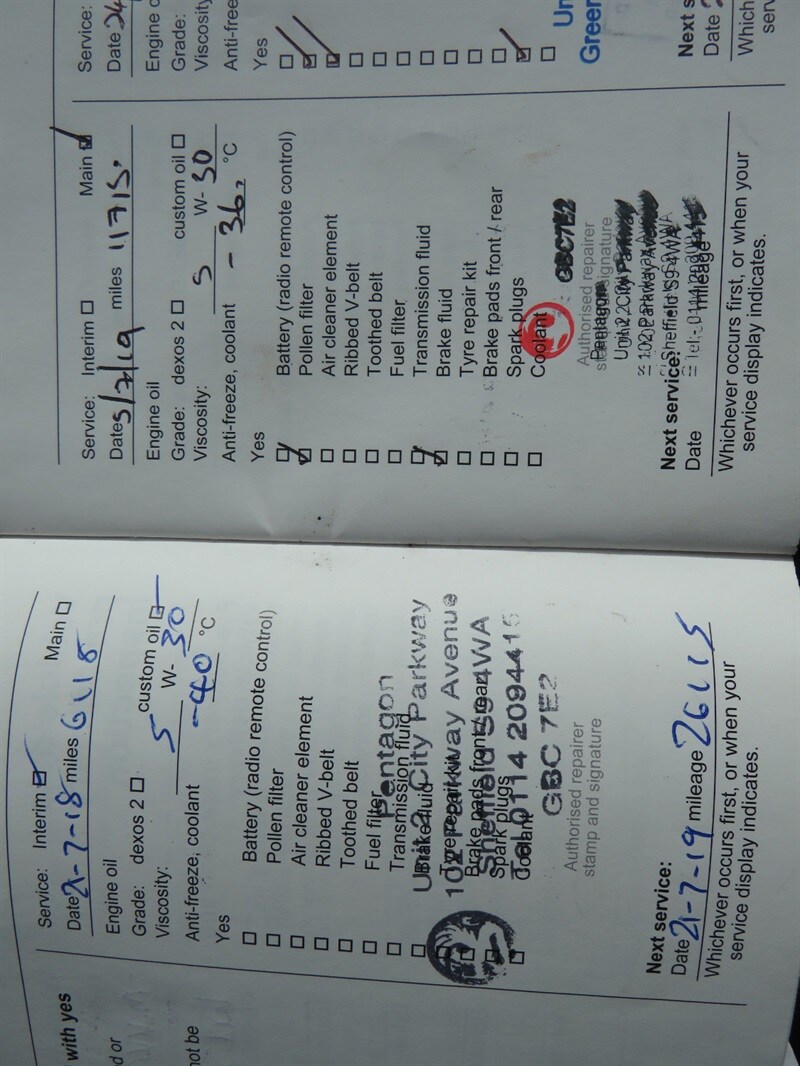 with yes
d or
not be
Service: Interim Main
Date 21-7-18 miles 6118
Engine oil
Grade: dexos 2 custom oil
Viscosity: 5 W- 30
Anti-freeze, coolant -40 °C
Yes
Battery (radio remote control)
Pollen filter
Air cleaner element
Ribbed V-belt
Toothed belt
Fuel filter
Transmission fluid
Brake fluid
Tyre repair kit
Brake pads front / rear
Spark plugs
Coolant
Pentagon
Unit 2 City Parkway
102 Parkway Avenue
Sheffield S9 4WA
Tel 0114 2094415
GBC 7E2
Authorised repairer
stamp and signature
Next service:
Date 21-7-19 mileage 26115
Whichever occurs first, or when your
service display indicates.
Service: Interim Main
Date 5/7/19 miles 11715.
Engine oil
Grade: dexos 2 custom oil
Viscosity: 5 W- 30
Anti-freeze, coolant - 36 °C
Yes
Battery (radio remote control)
Pollen filter
Air cleaner element
Ribbed V-belt
Toothed belt
Fuel filter
Transmission fluid
Brake fluid
Tyre repair kit
Brake pads front / rear
Spark plugs
Coolant
GBC7E2
Authorised repairer
stamp and signature
Pentagon
Unit 2 City Parkway
102 Parkway Avenue
Sheffield S9 4WA
Next service:
Date mileage
Whichever occurs first, or when your
service display indicates.
Service:
Date
Engine o
Grade:
Viscosity
Anti-free
Yes
Un
Green
Next s
Date
Which
serv